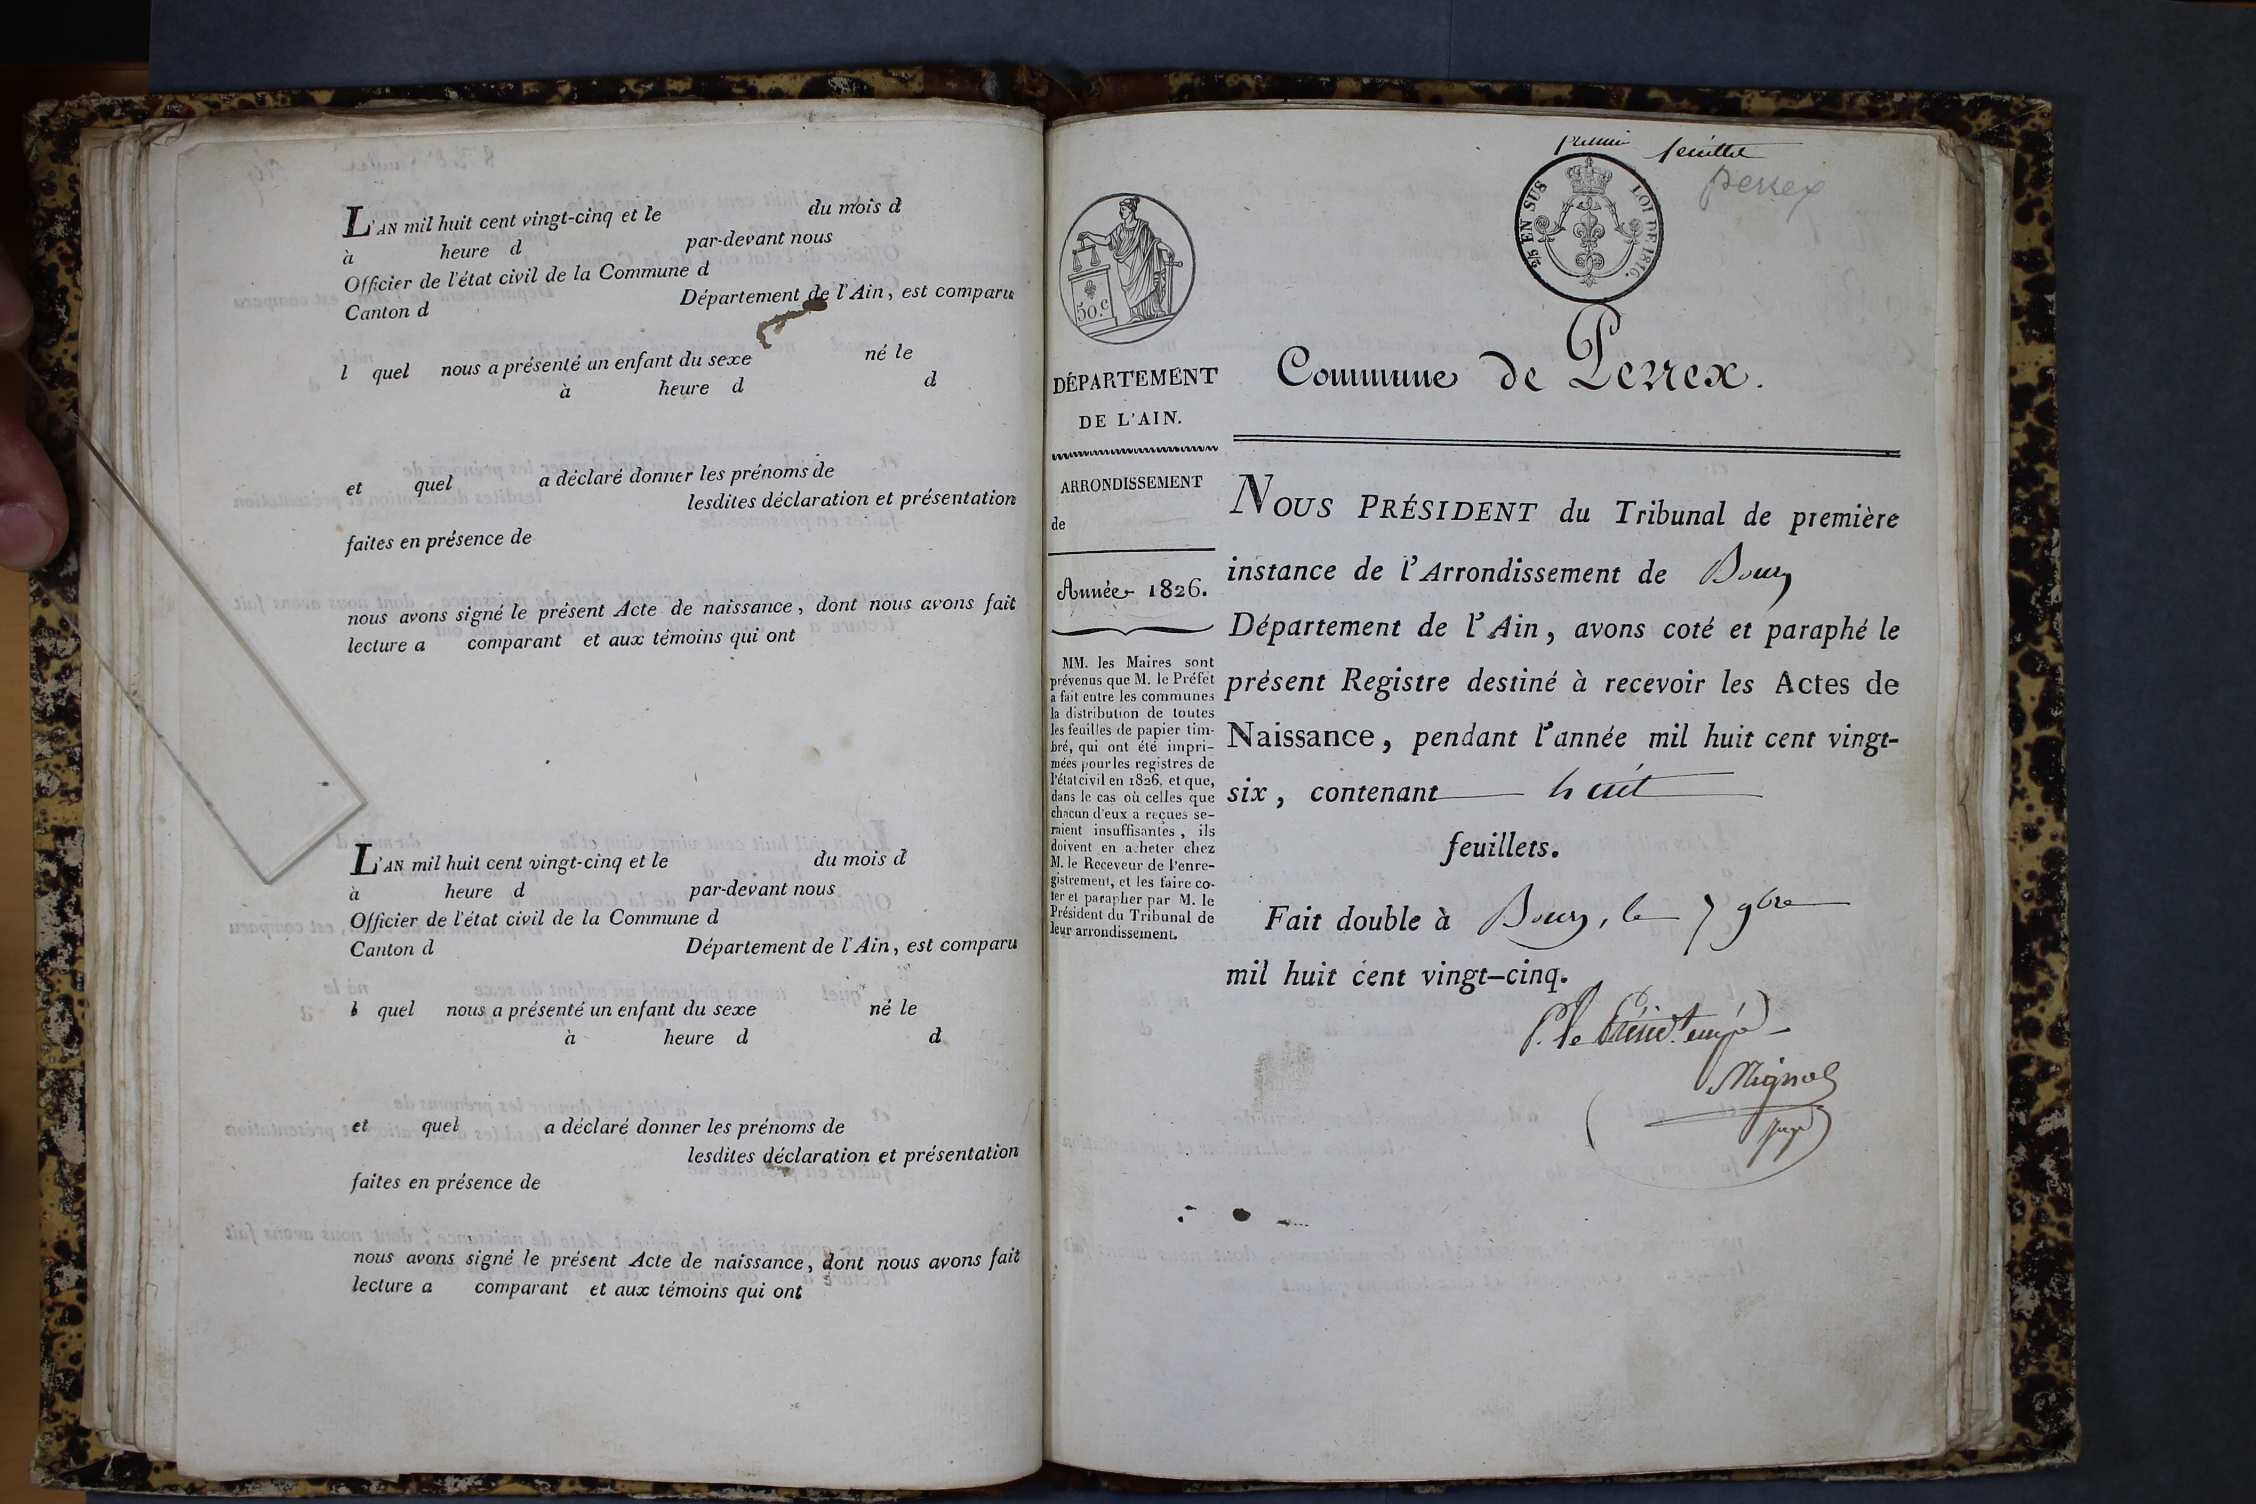 L'AN mil huit cent vingt-cinq et le du mois d
à heure d par-devant nous
Officier de l'état civil de la Commune d
Canton d Département de l'Ain, est comparu
l quel nous a présenté un enfant du sexe né le
à heure d d
et quel a déclaré donner les prénoms de
lesdites déclaration et présentation
faites en présence de
nous avons signé le présent Acte de naissance, dont nous avons fait
lecture a comparant et aux témoins qui ont
L'AN mil huit cent vingt-cinq et le du mois d
à heure d par-devant nous
Officier de l'état civil de la Commune d
Canton d Département de l'Ain, est comparu
l quel nous a présenté un enfant du sexe né le
à heure d d
et quel a déclaré donner les prénoms de
lesdites déclaration et présentation
faites en présence de
nous avons signé le présent Acte de naissance, dont nous avons fait
lecture a comparant et aux témoins qui ont
premier feuillet
perrex
2/5 EN SUS LOI DE 1816.
50.c
DÉPARTEMENT
DE L'AIN.
ARRONDISSEMENT
de
Année 1826.
MM. les Maires sont
prévenus que M. le Préfet
a fait entre les communes
la distribution de toutes
les feuilles de papier tim-
bré, qui ont été impri-
mées pour les registres de
l'état civil en 1826, et que,
dans le cas où celles que
chacun d'eux a reçues se-
raient insuffisantes, ils
doivent en acheter chez
M. le Receveur de l'enre-
gistrement, et les faire co-
ter et parapher par M. le
Président du Tribunal de
leur arrondissement.
Commune de Perrex.
NOUS PRÉSIDENT du Tribunal de première
instance de l'Arrondissement de Bourg
Département de l'Ain, avons coté et paraphé le
présent Registre destiné à recevoir les Actes de
Naissance, pendant l'année mil huit cent vingt-
six, contenant huit
feuillets.
Fait double à Bourg, le 7 9bre
mil huit cent vingt-cinq.
P. le Présidt. empé
juge